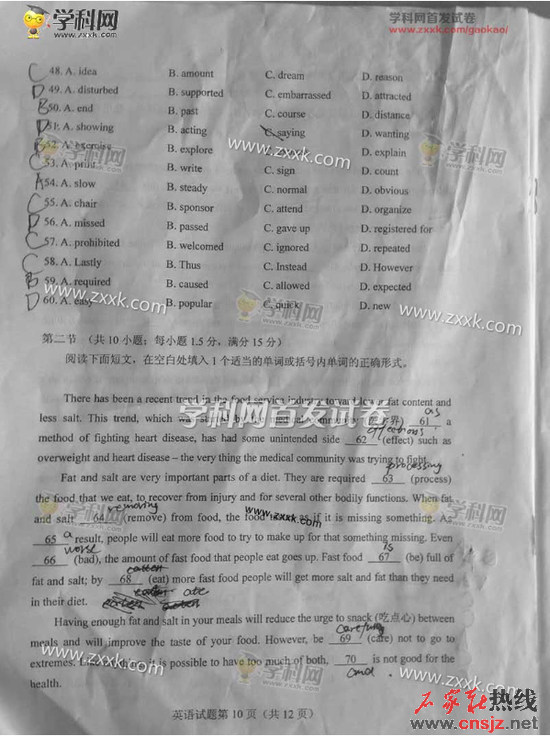 学科网
www.zxxk.com
学科网首发试卷
www.zxxk.com/gaokao/
C 48. A. idea B. amount C. dream D. reason
D 49. A. disturbed B. supported C. embarrassed D. attracted
B 50. A. end B. past C. course D. distance
D 51. A. showing B. acting C. saying D. wanting
B 52. A. exercise B. explore D. explain
C 53. A. print B. write C. sign D. count
A 54. A. slow B. steady C. normal D. obvious
C 55. A. chair B. sponsor C. attend D. organize
D 56. A. missed B. passed C. gave up D. registered for
C 57. A. prohibited B. welcomed C. ignored D. repeated
C 58. A. Lastly B. Thus C. Instead D. However
B 59. A. required B. caused C. allowed D. expected
D 60. A. easy B. popular C. quick D. new
第二节 (共10小题；每小题1.5分，满分15分)
阅读下面短文，在空白处填入1个适当的单词或括号内单词的正确形式。
There has been a recent trend in the food service industry toward lower fat content and
less salt. This trend, which was by the medical community 界) 61 as a
method of fighting heart disease, has had some unintended side 62 (effect) such as
overweight and heart disease – the very thing the medical community was trying to fight.
Fat and salt are very important parts of a diet. They are required 63 processing (process)
the food that we eat, to recover from injury and for several other bodily functions. When fat
and salt 64 removing (remove) from food, the food as if it is missing something. As
65 a result, people will eat more food to try to make up for that something missing. Even
66 worse (bad), the amount of fast food that people eat goes up. Fast food 67 is (be) full of
fat and salt; by 68 (eat) more fast food people will get more salt and fat than they need
in their diet. ate
Having enough fat and salt in your meals will reduce the urge to snack (吃点心) between
meals and will improve the taste of your food. However, be 69 (care) not to go to
extremes. it is possible to have too much of both, 70 and is not good for the
health.
英语试题第10页（共12页）
热线
www.cnsjz.net